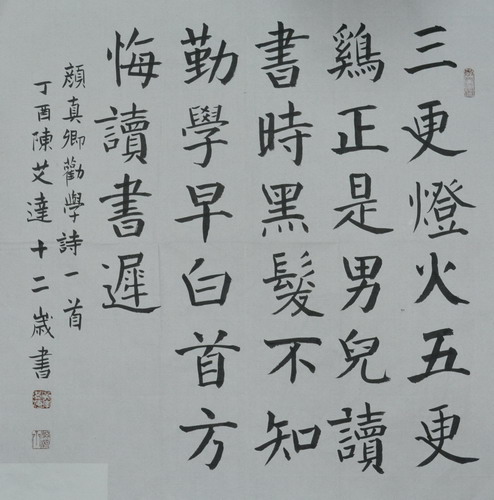 三更燈火五更
鷄正是男兒讀
書時黑髮不知
勤學早白首方
悔讀書遲
顏真卿勸學詩一首
丁酉陳艾達十二歲書